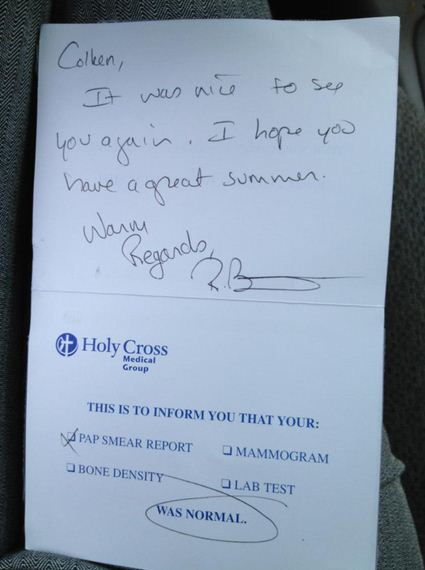 Colleen,
It was nice to see
you again. I hope you
have a great summer.
Warm
Regards,
R.B
Holy Cross
Medical
Group
THIS IS TO INFORM YOU THAT YOUR:
☒ PAP SMEAR REPORT ❑ MAMMOGRAM
❑ BONE DENSITY ❑ LAB TEST
WAS NORMAL.